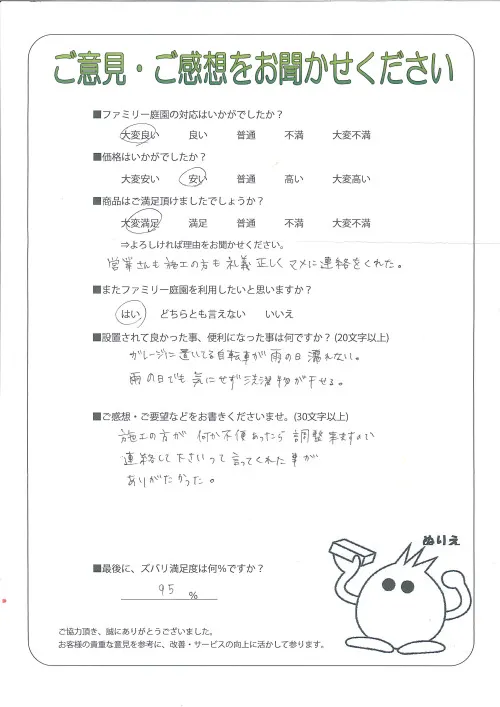 ご意見・ご感想をお聞かせください
■ファミリー庭園の対応はいかがでしたか？
大変良い 良い 普通 不満 大変不満
■価格はいかがでしたか？
大変安い 安い 普通 高い 大変高い
■商品はご満足頂けましたでしょうか？
大変満足 満足 普通 不満 大変不満
⇒よろしければ理由をお聞かせください。
営業さんも施工の方も礼義正しくマメに連絡をくれた。
■またファミリー庭園を利用したいと思いますか？
はい どちらとも言えない いいえ
■設置されて良かった事、便利になった事は何ですか？(20文字以上)
ガレージに置いてる自転車が雨の日濡れない。
雨の日でも気にせず洗濯物が干せる。
■ご感想・ご要望などをお書きくださいませ。(30文字以上)
施工の方が 何か不便あったら調整来ますので
連絡して下さいって言ってくれた事が
ありがたかった。
ぬりえ
■最後に、ズバリ満足度は何％ですか？
95 ％
ご協力頂き、誠にありがとうございました。
お客様の貴重な意見を参考に、改善・サービスの向上に活かして参ります。